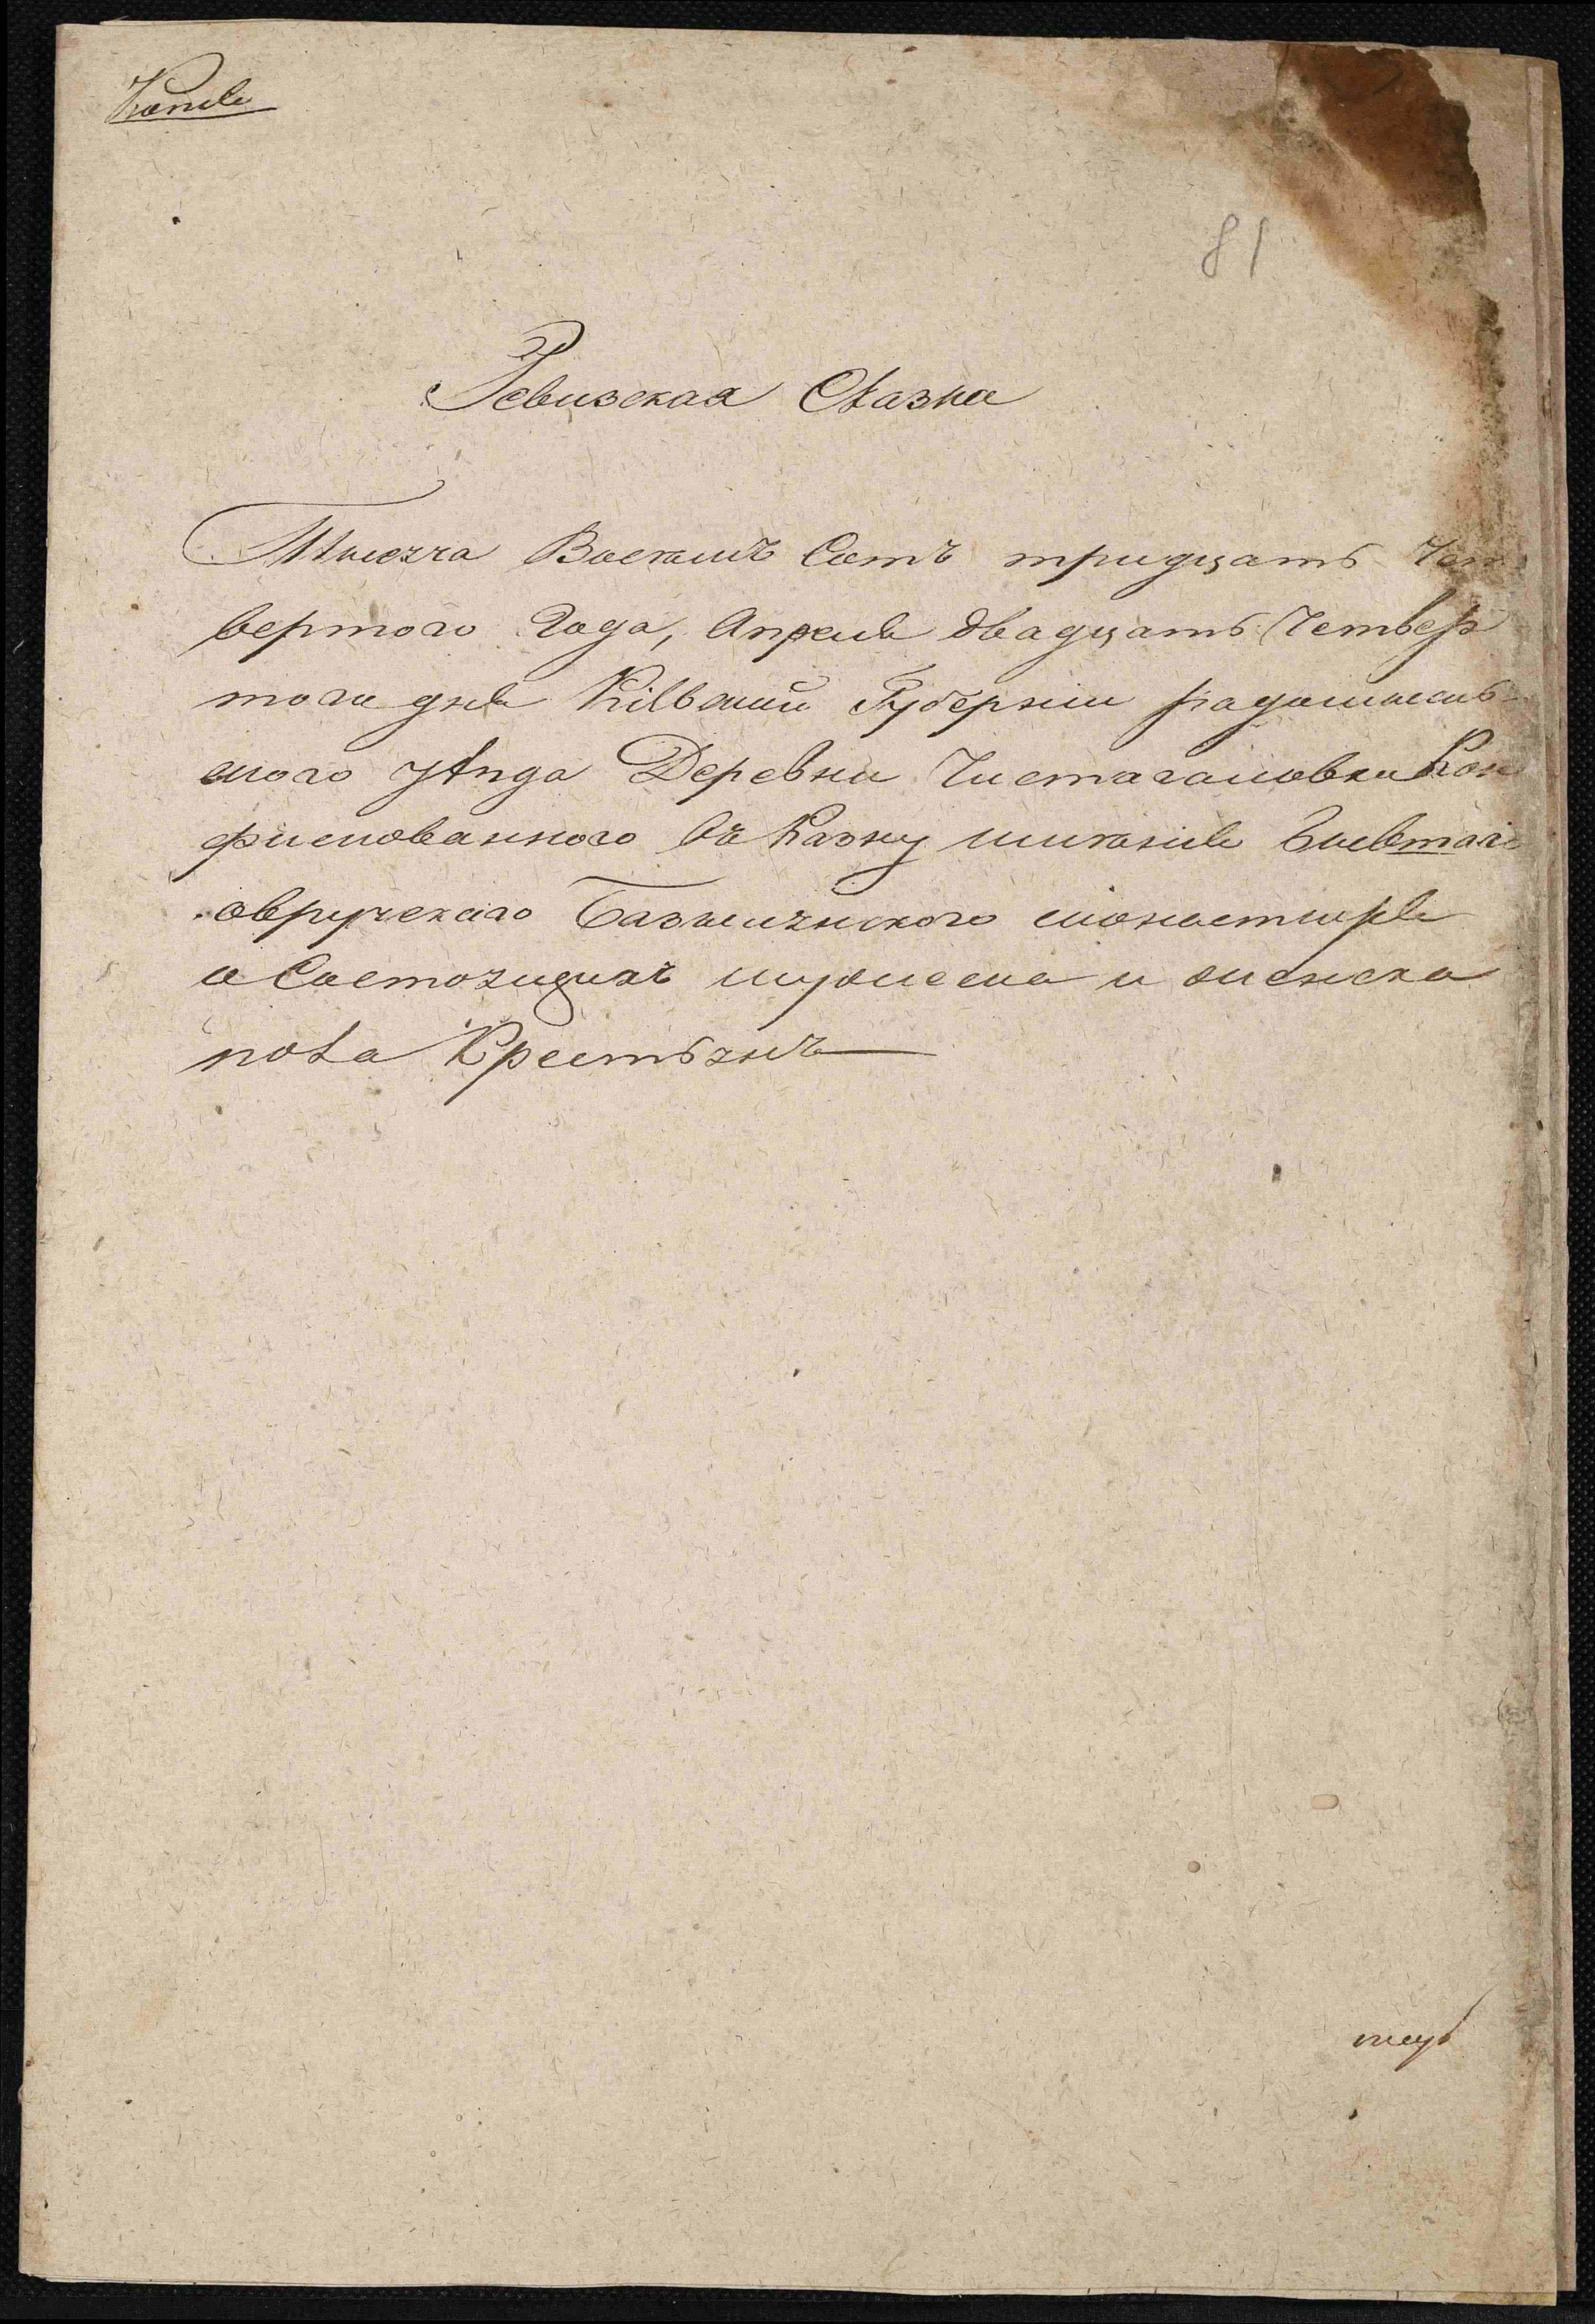 Копія
81
Ревизская Сказка
Тысяча Восемъ Сотъ тридцать Чет
вертого Года, Апреля двадцать Четвер
того дня Кіевской Губерніи радомысль
ского уезда Деревни Чистогаловки Кон
фискованного въ Казну имѣнія бывшого
овручского Базыліянского монастыря
о Состоящихъ мужеска и женска
пола Крестьянъ